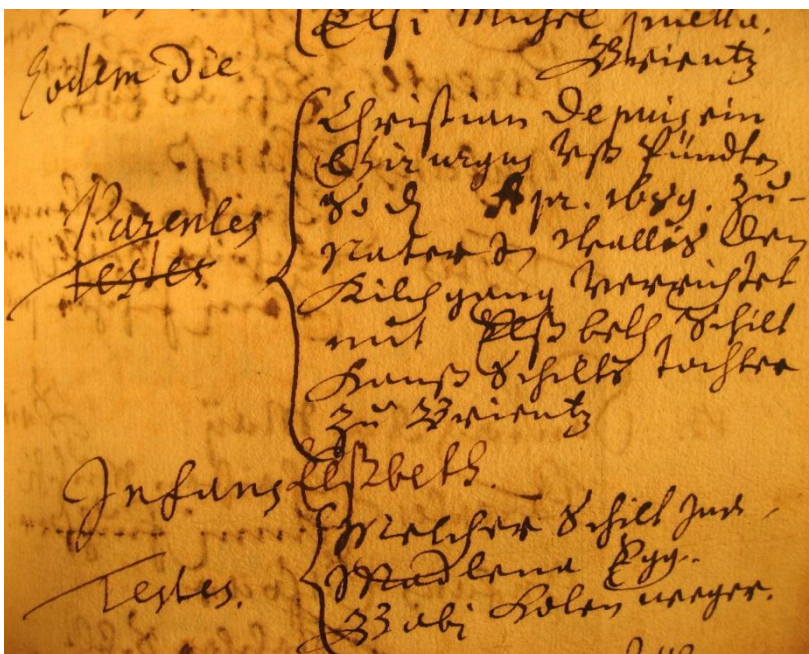 Elsi Michel puella.
Brientz
Eodem die
Parentes
Testes
Christian De
Chirurgus uß Pündten
So d Apr. 1689. zu-
Naters in Wallis den
Kilchgang verrichtet
mit Elßbeth Schilt
Hanß Schilts tochter
zu Brientz
Infans Elßbeth.
Testes.
Melcher Schilt
Madlena Egg.
Babi